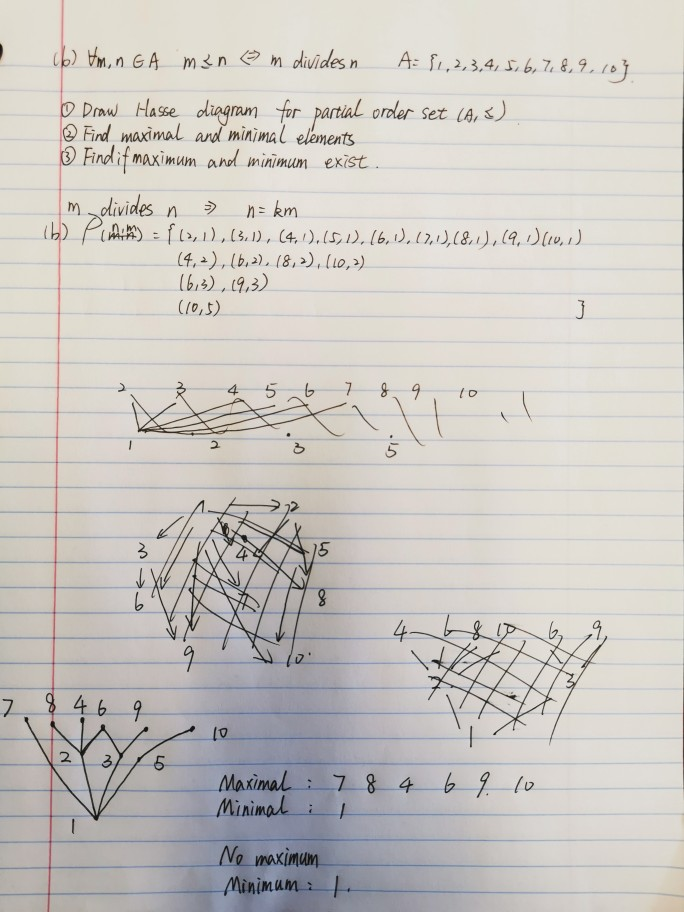 (b) ∀m,n ∈ A m ≤ n ⇔ m divides n A = {1,2,3,4,5,6,7,8,9,10}
① Draw Hasse diagram for partial order set (A, ≤)
② Find maximal and minimal elements
③ Find if maximum and minimum exist.
m divides n ⇒ n = km
(b) P(n,m) = { (2,1), (3,1), (4,1), (5,1), (6,1), (7,1), (8,1), (9,1) (10,1)
(4,2), (6,2), (8,2), (10,2)
(6,3), (9,3)
(10,5) }
2 3 4 5 6 7 8 9 10
1 2 3 5
1 2
3 4 5
6 7 8
9 10.
4 6 8 10 6 9
2 3
1
7 8 4 6 9 10
2 3 5
1
Maximal : 7 8 4 6 9. 10
Minimal : 1
No maximum
Minimum : 1.